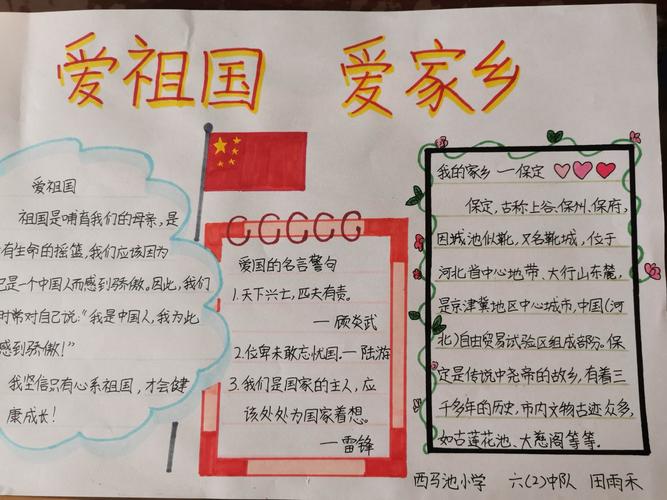 爱祖国 爱家乡
爱祖国
祖国是哺育我们的母亲,是
有生命的摇篮,我们应该因为
是一个中国人而感到骄傲。因此,我们
时常对自己说:"我是中国人,我为此
感到骄傲!"
我坚信只有心系祖国,才会健
康成长!
爱国的名言警句
1.天下兴亡,匹夫有责。
—顾炎武
2.位卑未敢忘忧国.—陆游
3.我们是国家的主人,应
该处处为国家着想。
—雷锋
我的家乡—保定
保定,古称上谷、保州、保府,
因城池似靴,又名靴城,位于
河北省中心地带、太行山东麓,
是京津冀地区中心城市,中国(河
北)自由贸易试验区组成部分。保
定是传说中尧帝的故乡,有着三
千多年的历史,市内文物古迹众多,
如古莲花池、大慈阁等等。
西马池小学 六(2)中队 田雨禾